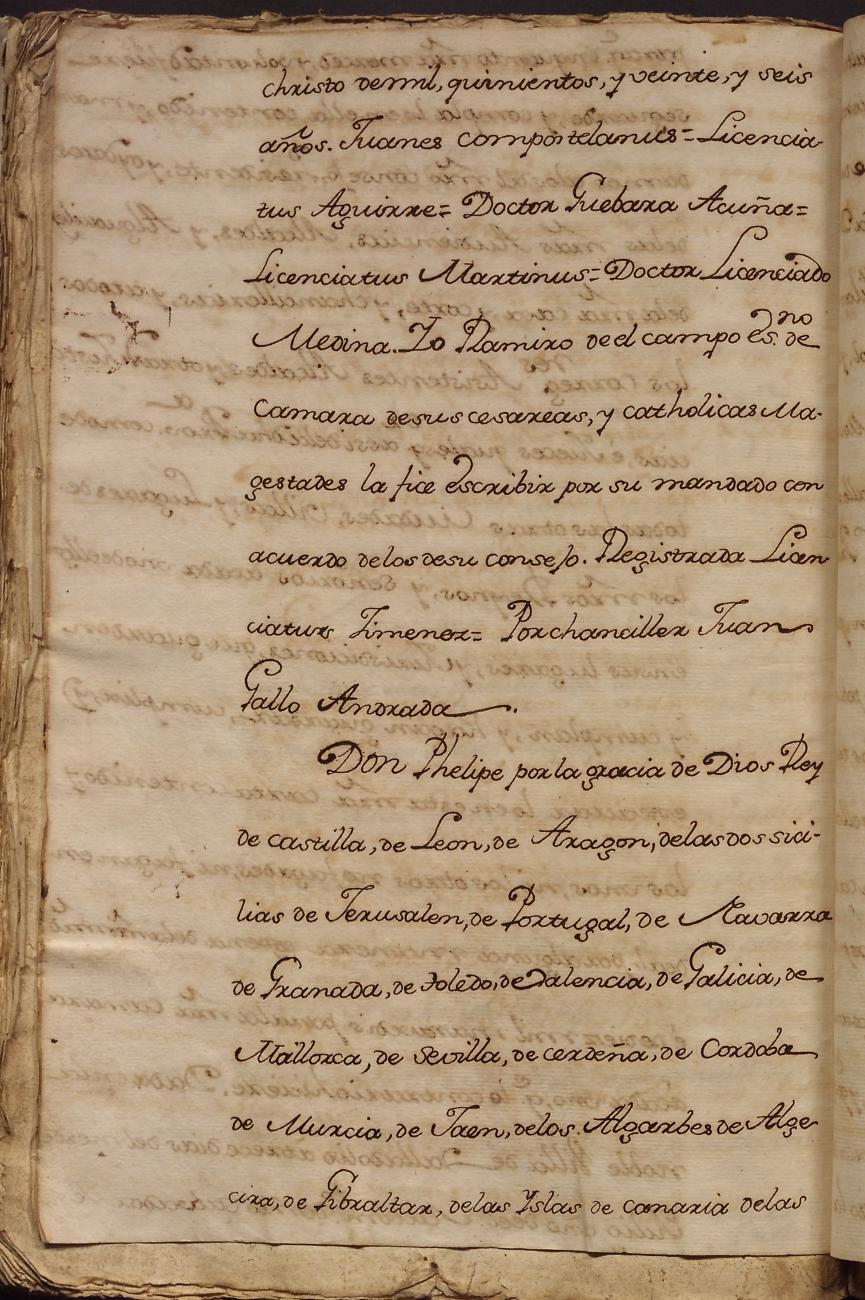 christo demil, quinientos, y veinte, y seis
años. Juanes compostelanus = Licencia-
tus Aguirre = Doctor Guebara Acuña =
Licenciatus Martinus = Doctor Licenciado
Medina. Yo Ramiro de el campo Es.no de
Camara desus cesareas, y catholicas Ma-
gestades la fice Escribir por su mandado con
acuerdo delos desu consejo. Registrada Licen
ciatus Jimenez = Por chanciller Juan
Gallo Andrada.
Don Phelipe por la gracia de Dios Rey
de castilla, de Leon, de Aragon, delas dos sici-
lias de Jerusalen, de Portugal, de Navarra
de Granada, de toledo, de Valencia, de Galicia, de
Mallorca, de Sevilla, de cerdeña, de Cordoba
de Murcia, de Jaen, delos Algarbes de Alge
cira, de Gibraltar, delas Yslas de canaria delas